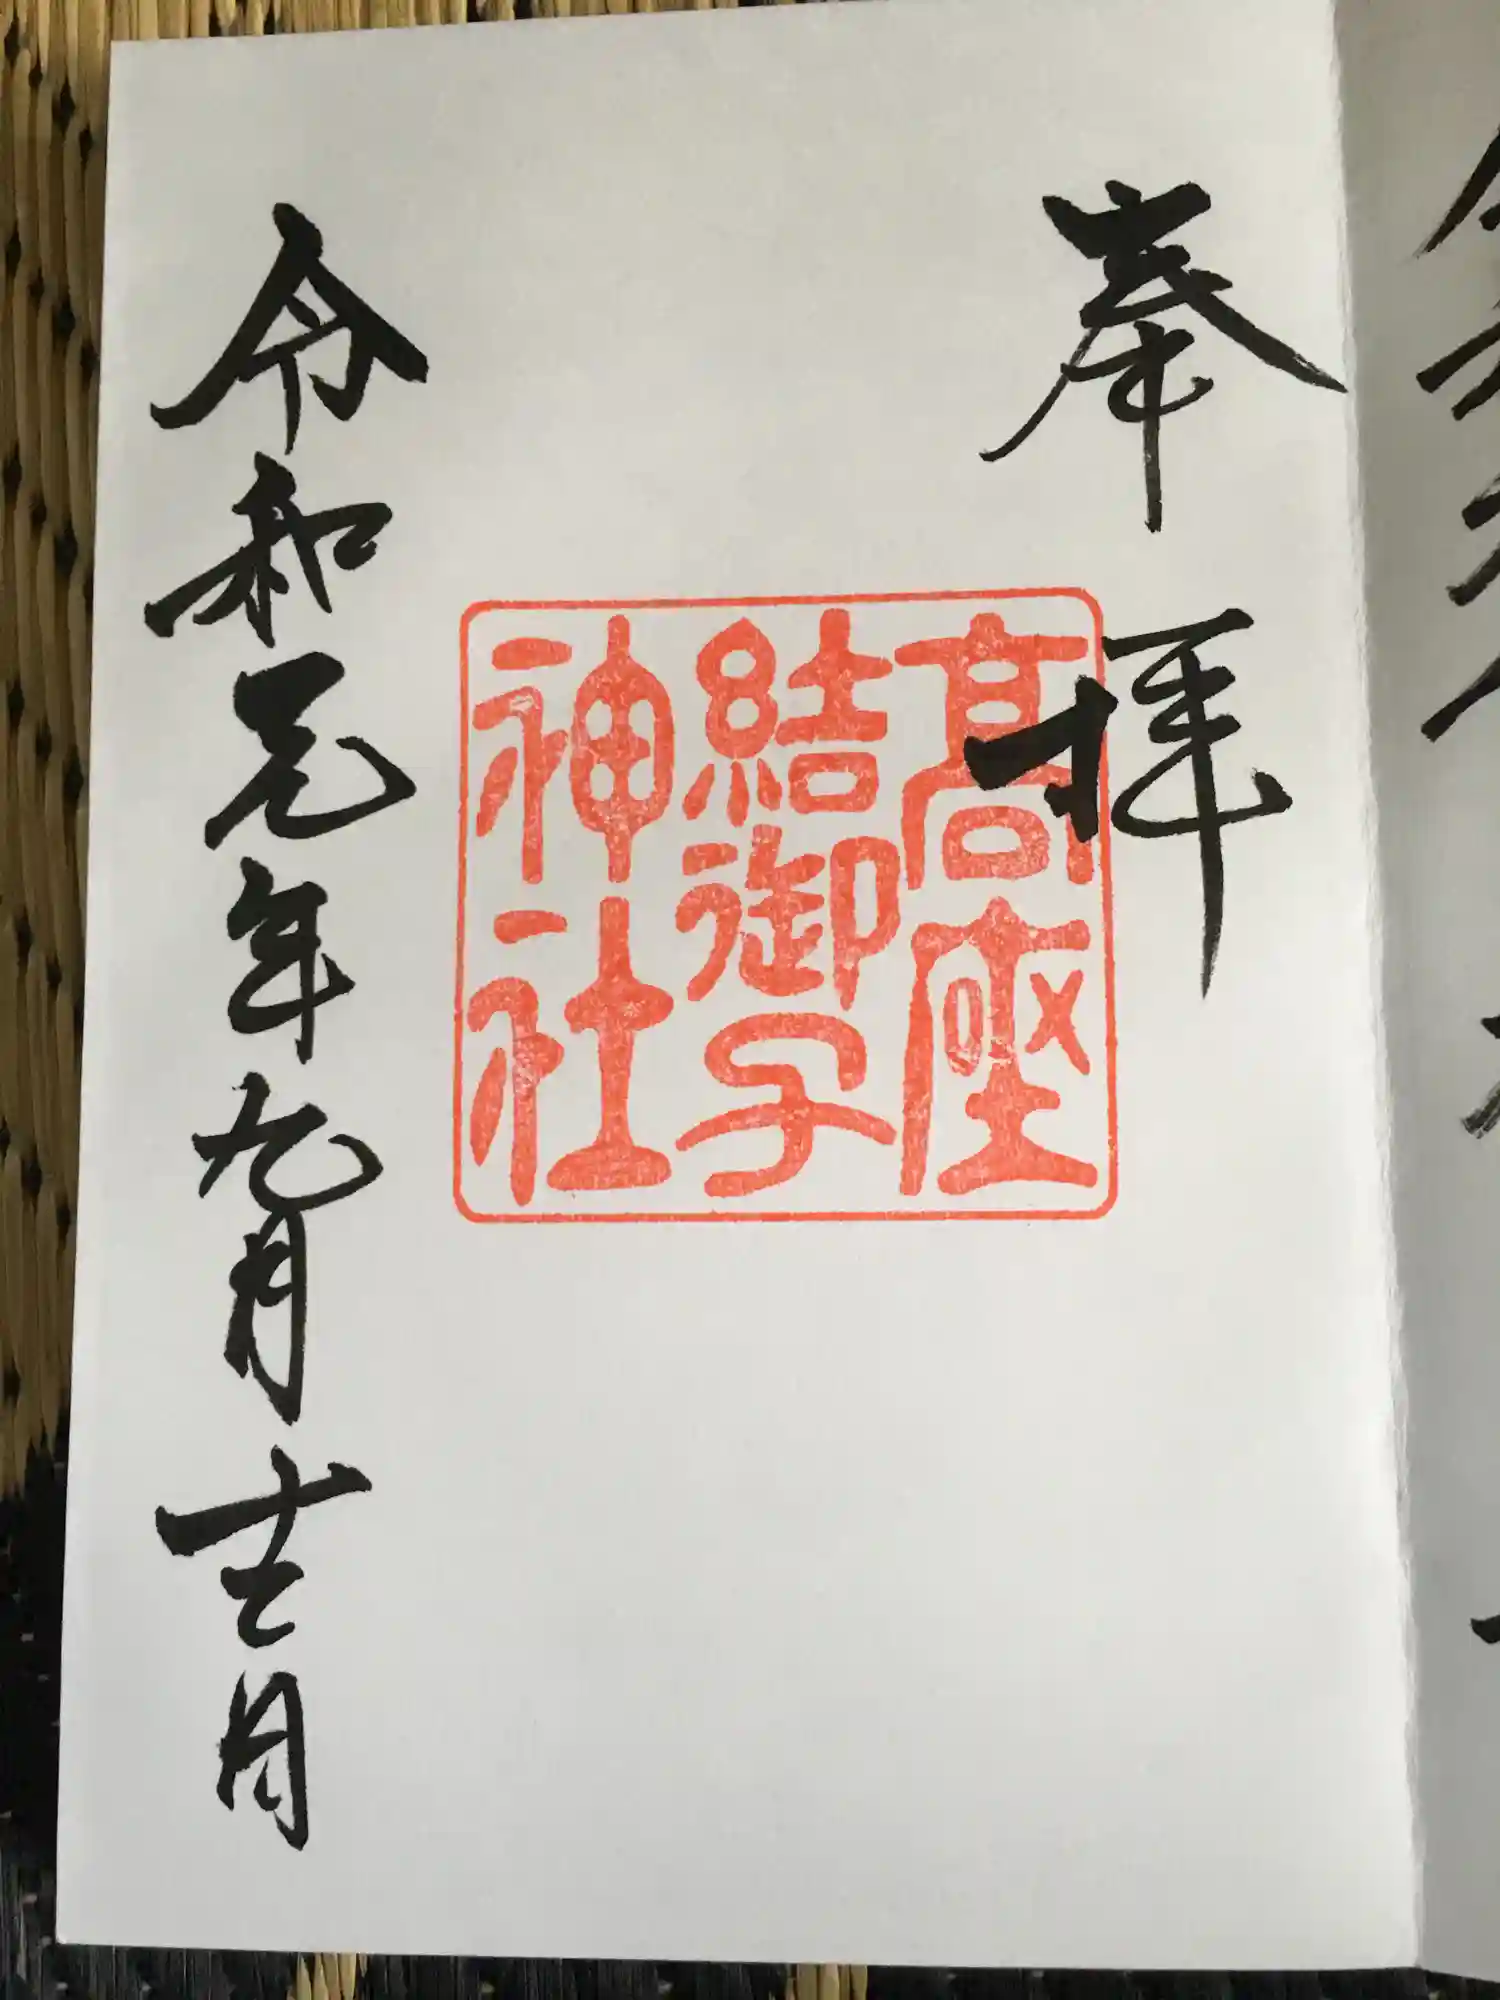 奉拝
高座
結御子
神社
令和元年九月十七日